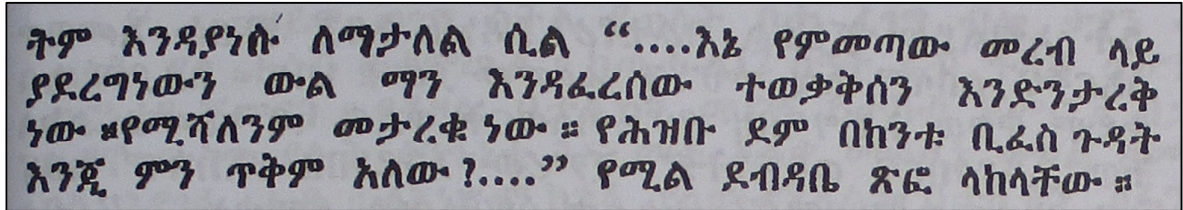 ትም እንዳያነሱ ለማታለል ሲል “....እኔ የምመጣው መረብ ላይ
ያደረግነውን ውል ማን እንዳፈረሰው ተወቃቅሰን እንድንታረቅ
ነው ።የሚሻለንም መታረቁ ነው ። የሕዝቡ ደም በከንቱ ቢፈስ ጉዳት
እንጂ ምን ጥቅም አለው ?....” የሚል ደብዳቤ ጽፎ ላከላቸው ።